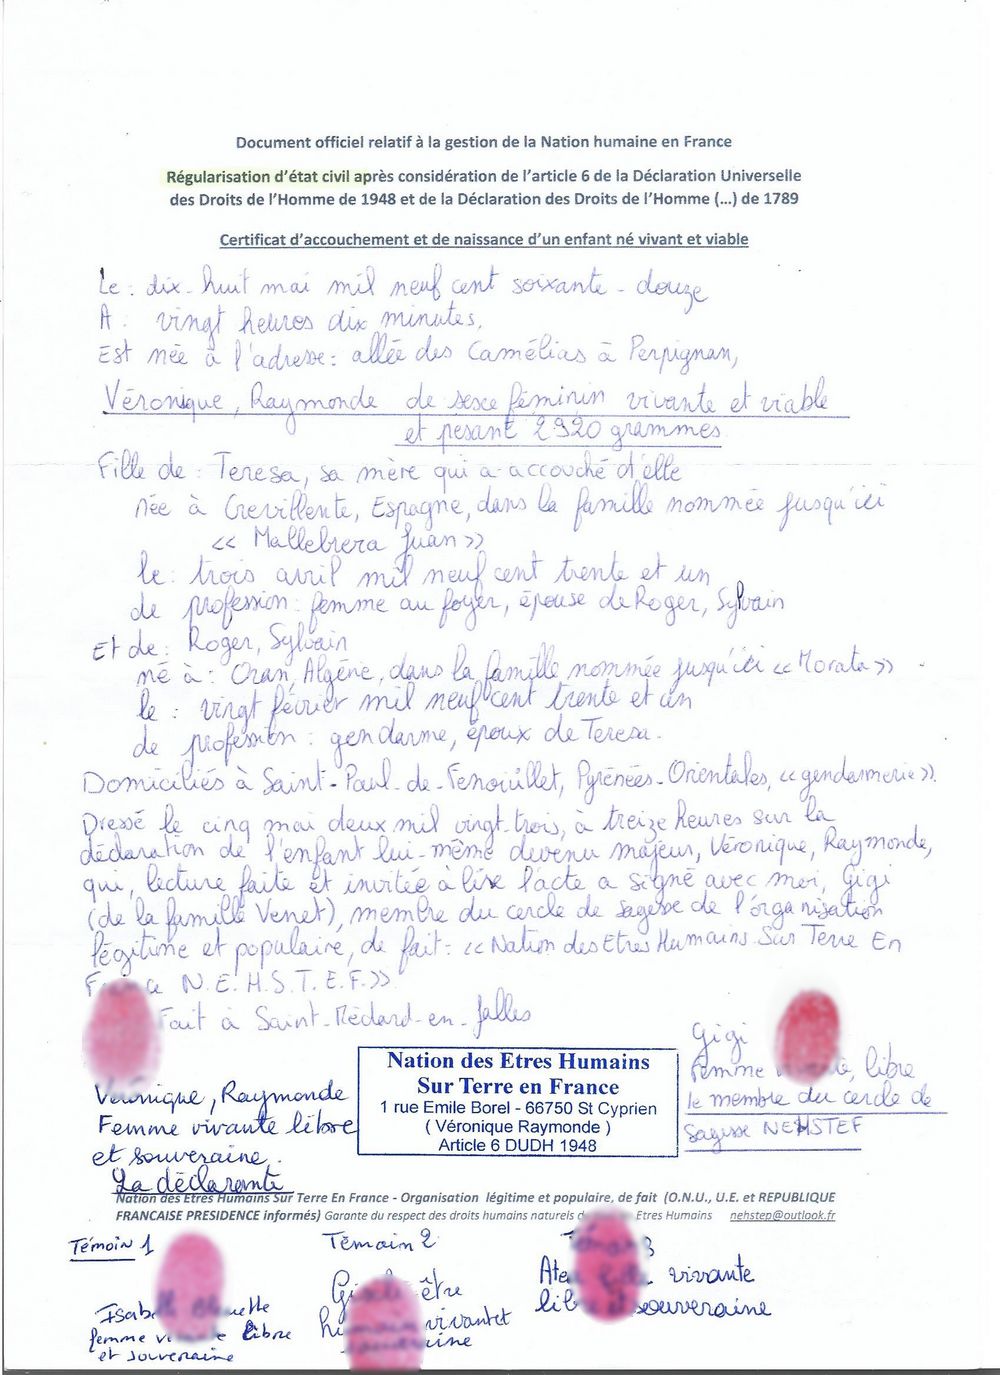 Document officiel relatif à la gestion de la Nation humaine en France
Régularisation d'état civil après considération de l'article 6 de la Déclaration Universelle
des Droits de l'Homme de 1948 et de la Déclaration des Droits de l'Homme (...) de 1789
Certificat d'accouchement et de naissance d'un enfant né vivant et viable
Le : dix-huit mai mil neuf cent soixante-douze
A : vingt heures dix minutes,
Est née à l'adresse : allée des Camélias à Perpignan,
Véronique, Raymonde de sexe féminin vivante et viable
et pesant 2920 grammes
Fille de : Teresa, sa mère qui a accouché d'elle
née à Crevillente, Espagne, dans la famille nommée jusqu'ici
<< Mallebrera Juan >>
le : trois avril mil neuf cent trente et un
de profession : femme au foyer, épouse de Roger, Sylvain
Et de : Roger, Sylvain
né à : Oran, Algérie, dans la famille nommée jusqu'ici << Morata >>
le : vingt février mil neuf cent trente et un
de profession : gendarme, époux de Teresa.
Domiciliés à Saint-Paul-de-Fenouillet, Pyrénées-Orientales, << gendarmerie >>.
Dressé le cinq mai deux mil vingt-trois, à treize heures sur la
déclaration de l'enfant lui-même devenu majeur, Véronique, Raymonde,
qui, lecture faite et invitée à lire l'acte a signé avec moi, Gigi
(de la famille Venet), membre du cercle de sagesse de l'organisation
légitime et populaire, de fait : << Nation des Etres Humains Sur Terre En
France N.E.H.S.T.E.F. >>
Fait à Saint-Médard-en-Jalles
Gigi
femme vivante, libre
le membre du cercle de
Sagesse NEHSTEF
Nation des Etres Humains
Sur Terre en France
1 rue Emile Borel - 66750 St Cyprien
( Véronique Raymonde )
Article 6 DUDH 1948
Véronique, Raymonde
Femme vivante libre
et souveraine.
La déclarante
Nation des Etres Humains Sur Terre En France - Organisation légitime et populaire, de fait (O.N.U., U.E. et REPUBLIQUE
FRANCAISE PRESIDENCE informés) Garante du respect des droits humains naturels des Etres Humains nehstep@outlook.fr
Témoin 1
femme vivante libre
et souveraine
Témoin 2
être
humain vivant et
souveraine
Témoin 3
vivante
libre et souveraine